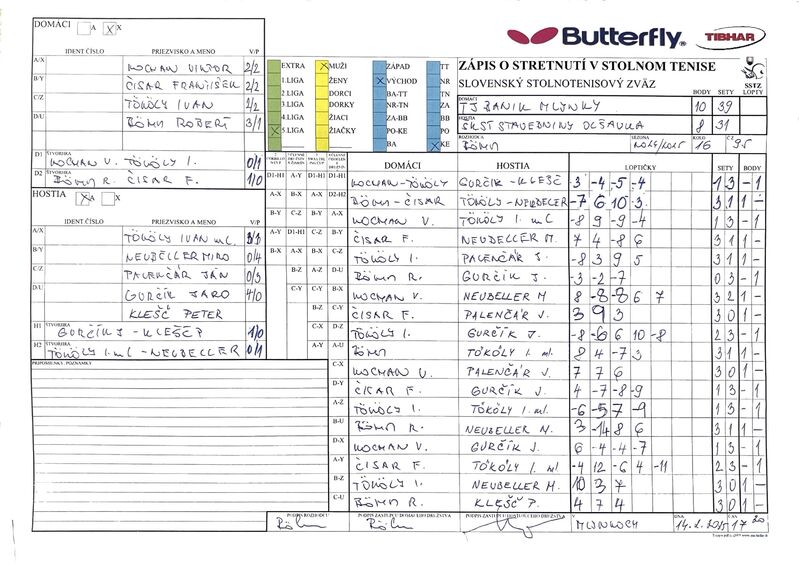 DOMÁCI A X X
IDENT ČÍSLO PRIEZVISKO A MENO V/P
A/X KOCMAN VIKTOR 2/2
B/Y ČISAR FRANTIŠEK 2/2
C/Z TÖKÖLY IVAN 2/2
D/U BÖHM ROBERT 3/1
ŠTVORHRA
D1 KOCMAN V. TÖKÖLY I. 0/1
ŠTVORHRA
D2 BÖHM R. ČISAR F. 1/0
HOSTIA A X
IDENT ČÍSLO PRIEZVISKO A MENO V/P
A/X TÖKÖLY IVAN ml.
B/Y NEUBELLER MIRO 0/4
C/Z PALENČÁR JÁN 0/3
D/U GURČÍK JARO 4/0
KLEŠČ PETER
ŠTVORHRA
H1 GURČÍK J - KLEŠČ P 1/0
ŠTVORHRA
H2 TÖKÖLY I. ml - NEUBELLER 0/1
PRIPOMIENKY, POZNÁMKY
EXTRA MUŽI ZÁPAD TT
1.LIGA ŽENY VÝCHOD NR
2.LIGA DORCI BA-TT TN
3.LIGA DORKY NR-TN ZA
4.LIGA ŽIACI ZA-BB BB
5.LIGA ŽIAČKY PO-KE PO
BA KE
Butterfly TIBHAR
ZÁPIS O STRETNUTÍ V STOLNOM TENISE
SLOVENSKÝ STOLNOTENISOVÝ ZVÄZ
SSTZ
BODY SETY LOPTY
DOMÁCI
TJ BANÍK MLYNKY 10 39
HOSTIA
SKST STAVEBNINY OLŠAVKA 8 31
ROZHODCA SEZONA KOLO
BÖHM 2014/2015 16
DOMÁCI HOSTIA LOPTIČKY SETY BODY
D1-H1 KOCMAN-TÖKÖLY GURČÍK-KLEŠČ 3 -4 -5 -4 1 3 - 1
D2-H2 BÖHM - ČISAR TÖKÖLY-NEUBELLER -7 6 10 3 3 1 1 -
A-X KOCMAN V. TÖKÖLY I. ml -8 9 -9 -4 1 3 - 1
B-Y ČISAR F. NEUBELLER M. 7 4 -8 6 3 1 1 -
C-Z TÖKÖLY I. PALENČÁR J. -8 3 9 5 3 1 1 -
D-U BÖHM R. GURČÍK J. -3 -2 -7 0 3 - 1
B-X KOCMAN V. NEUBELLER M 8 -8 -8 6 7 3 2 1 -
C-Y ČISAR F. PALENČÁR J. 3 9 3 3 0 1 -
D-Z TÖKÖLY I. GURČÍK J. -8 -6 6 10 -8 2 3 - 1
A-U BÖHM TÖKÖLY I. ml. 8 4 -7 3 3 1 1 -
C-X KOCMAN V. PALENČÁR J. 7 7 6 3 0 1 -
D-Y ČISAR F. GURČÍK J. 4 -7 -8 -9 1 3 - 1
A-Z TÖKÖLY I. TÖKÖLY I. ml. -6 -5 7 -9 1 3 - 1
B-U BÖHM R. NEUBELLER M. 3 -14 8 6 3 1 1 -
D-X KOCMAN V. GURČÍK J. 6 -4 -4 -7 1 3 - 1
A-Y ČISAR F. TÖKÖLY I. ml -4 12 -6 4 -11 2 3 - 1
B-Z TÖKÖLY I. NEUBELLER M. 10 3 7 3 0 1 -
C-U BÖHM R. KLEŠČ P. 4 7 4 3 0 1 -
PODPIS ROZHODCU PODPIS ZÁSTUPCU DOMÁCEHO DRUŽSTVA PODPIS ZÁSTUPCU HOSŤUJÚCEHO DRUŽSTVA V DŇA ČAS
Böhm Böhm MLYNKOCH 14.2.2015 17 20